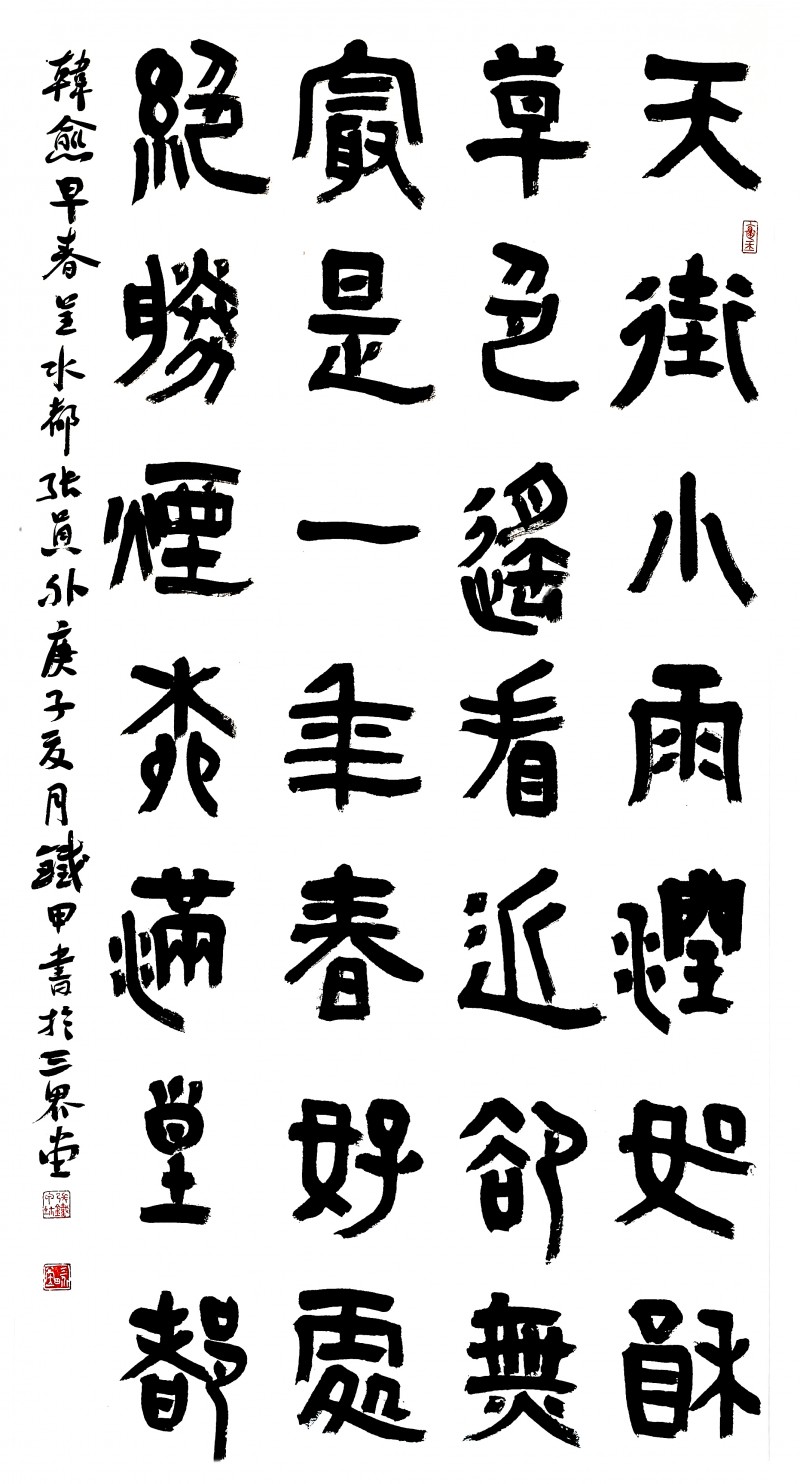 天街小雨潤如酥
草色遙看近卻無
最是一年春好處
絶勝煙柳滿皇都
韓愈早春呈水都張員外庚子月鐵甲書於三界堂